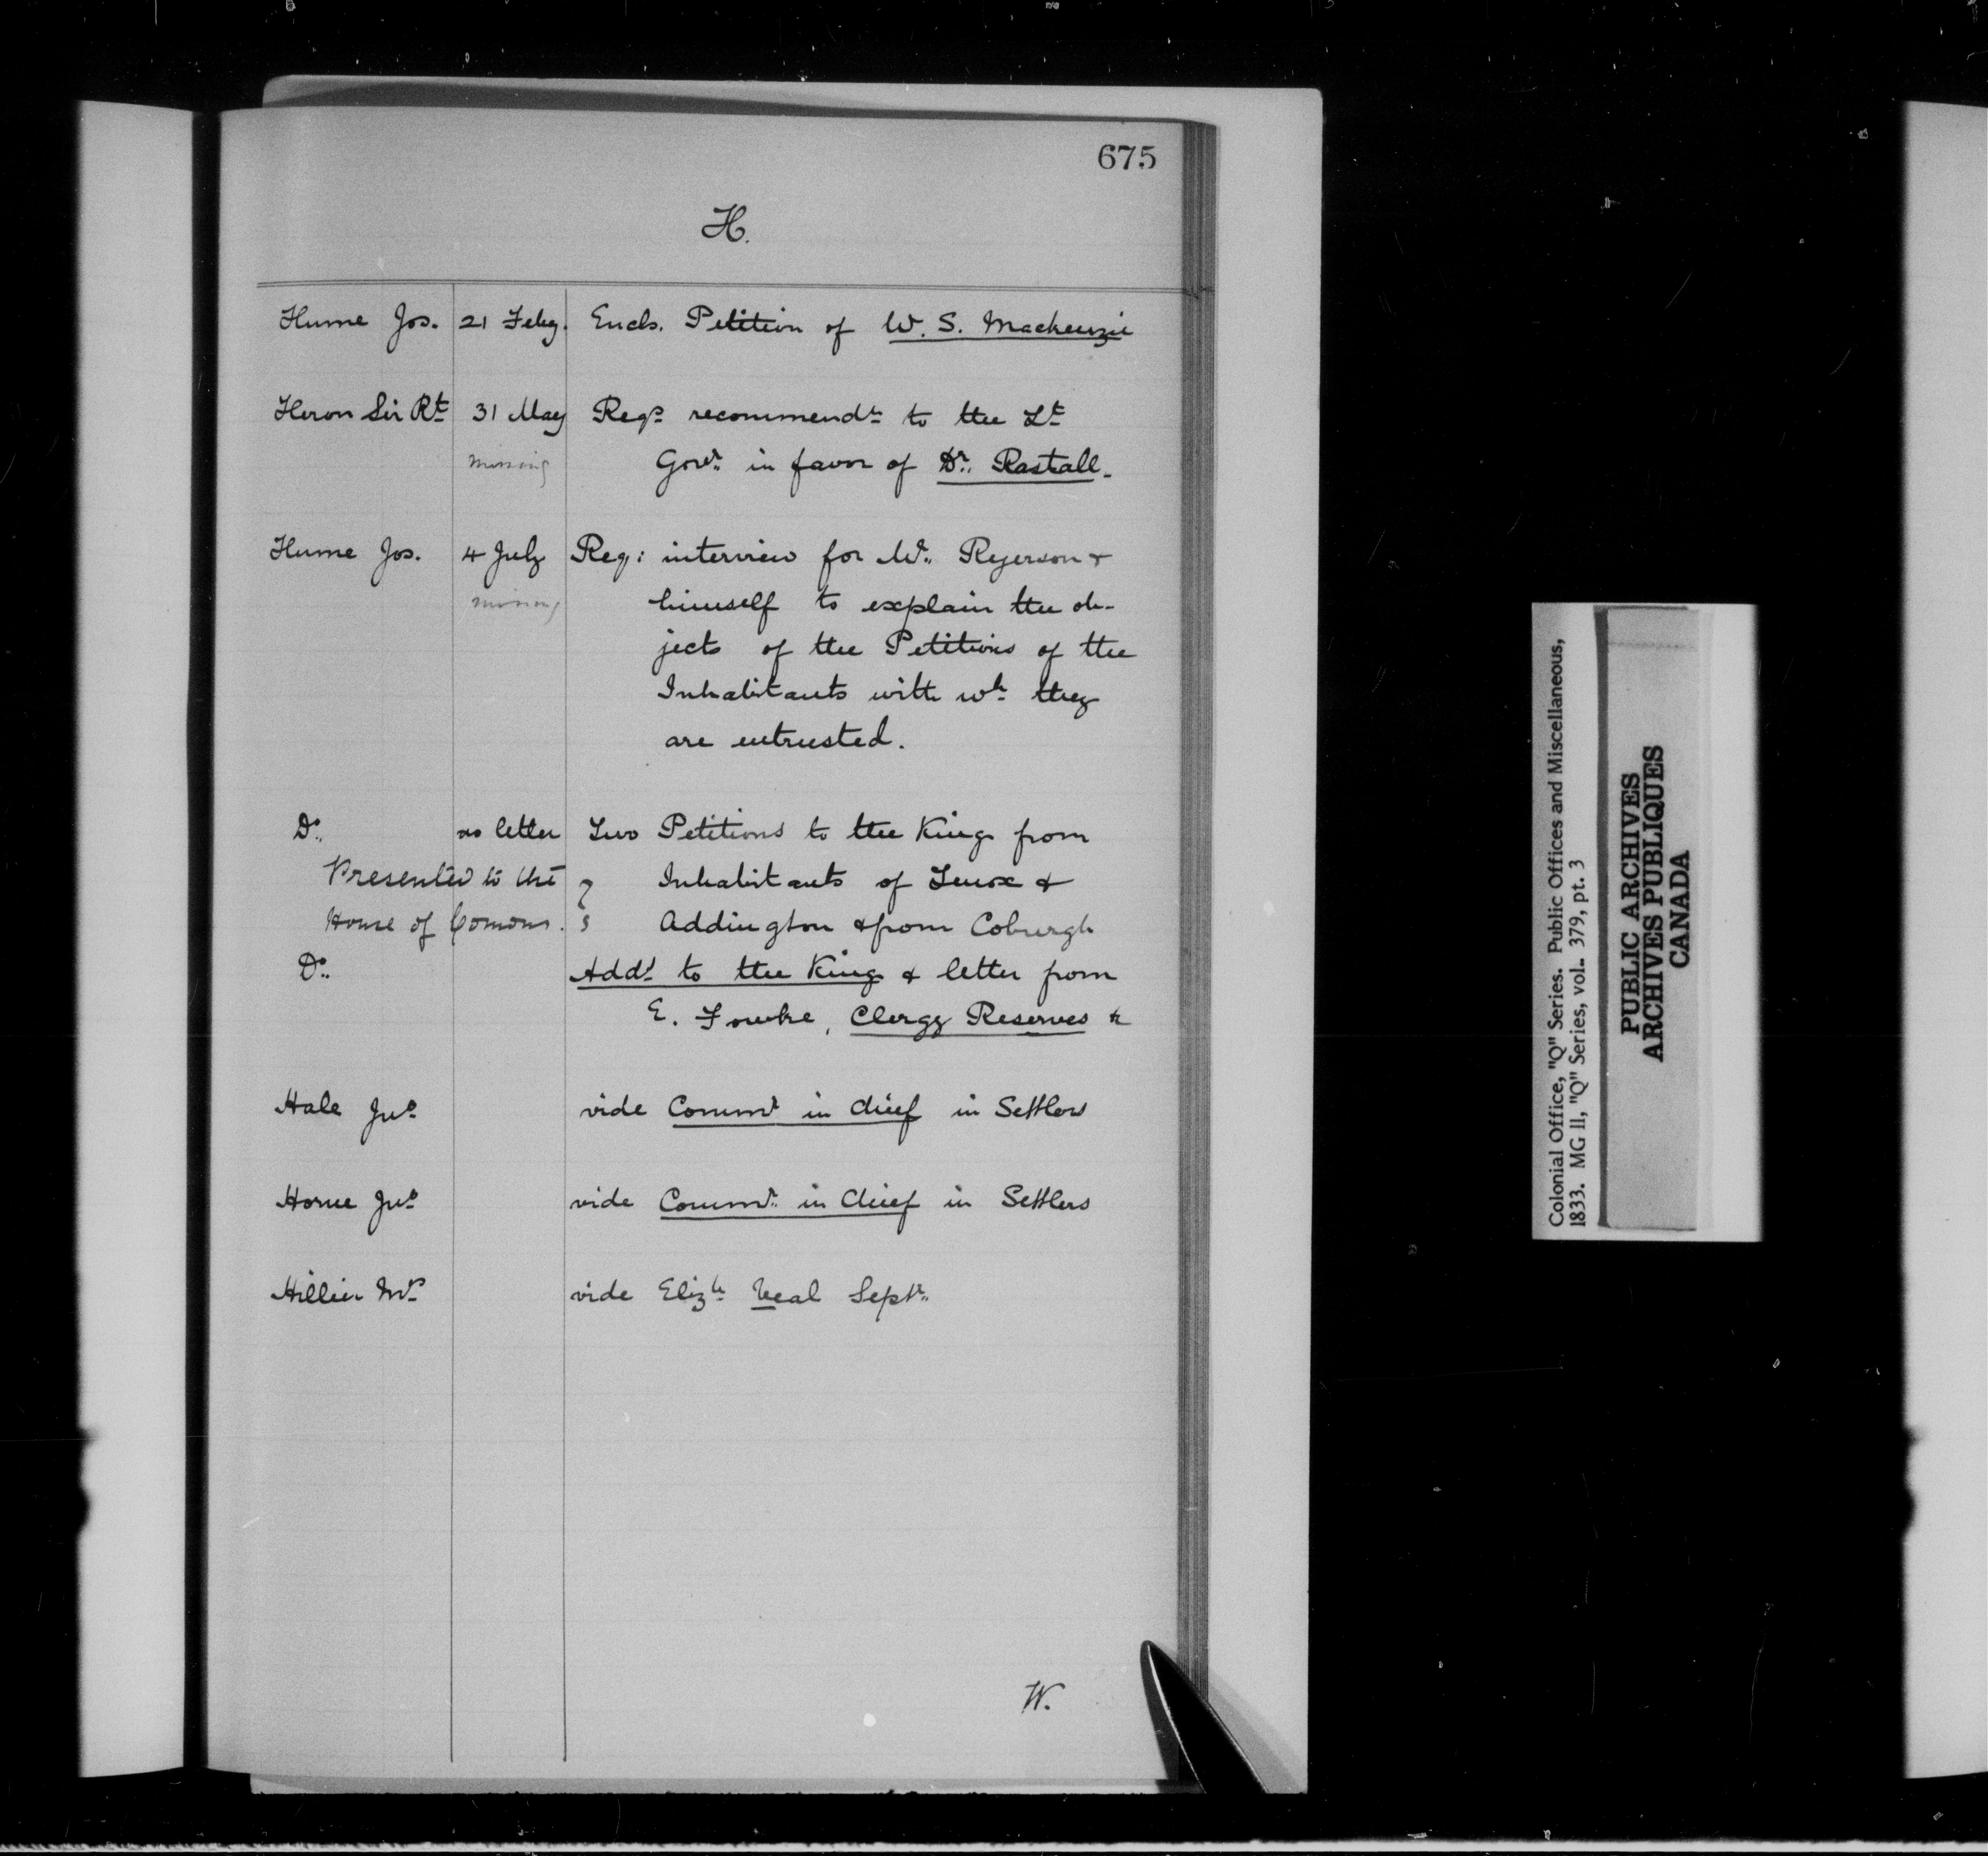 675
H.
Hume Jos. 21 Feby. Encls. Petition of W. S. Mackenzie
Heron Sir Rt 31 May Reqs recommendn to the Lt
missing Govr. in favor of Dr. Rastall.
Hume Jos. 4 July Req: interview for Mr. Ryerson &
missing himself to explain the ob-
jects of the Petitions of the
Inhabitants with wh they
are entrusted.
Do. no letter Two Petitions to the King from
Presented to the Inhabitants of Lenox &
House of Comons. Addington & from Coburgh
Do. Addd to the King & letter from
E. Fowke, Clergy Reserves &c
Hale Jno vide Commr in Chief in Settlers
Horne Jno vide Commr. in Chief in Settlers
Hillier Mrs vide Elizh Neal Septr.
W.
Colonial Office, "Q" Series. Public Offices and Miscellaneous,
1833. MG 11, "Q" Series, vol. 379, pt. 3
PUBLIC ARCHIVES
ARCHIVES PUBLIQUES
CANADA